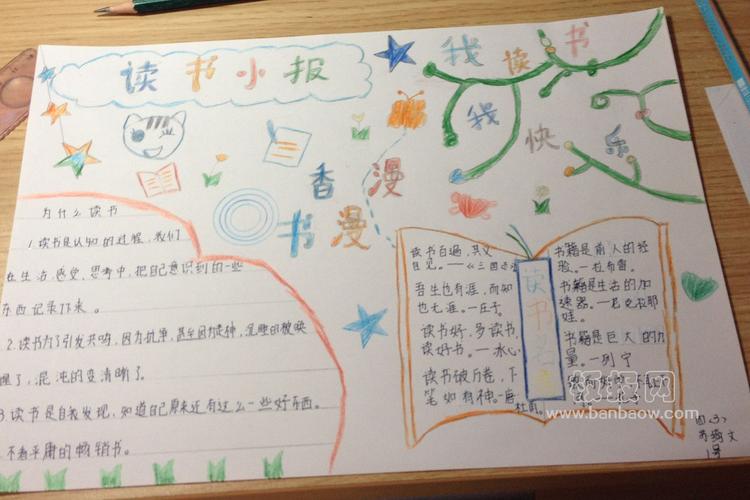 读书小报
我读书
我快乐
书香漫漫
为什么读书
1.读书是认知的过程,我们
在生活,感受,思考中,把自己意识到的一些
东西记录下来。
2.读书为了引发共鸣,因为抗争,甚至因为读神,混沌的被唤
醒了,混沌的变清晰了。
3.读书是自我发现,知道自己原来还有这么一些好东西。
不看平庸的畅销书。
读书百遍,其义
自见。——《三国志》
吾生也有涯,而知
也无涯。——庄子
读书好,多读书,
读好书。——冰心
读书破万卷,下
笔如有神。——唐
杜甫。
读书名言
书籍是前人的经
验。——拉布雷。
书籍是生活的加
速器。
娃。
书籍是巨大的力
量。——列宁
四(3)
文
1号
www.banbaow.com